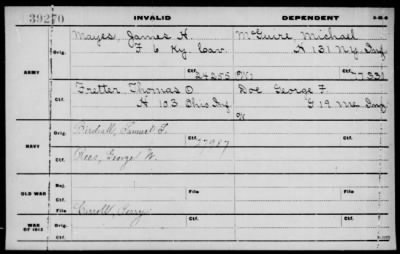 39270 INVALID DEPENDENT 3-2-6
Mayes, James H. McGuire, Michael
Orig. F 6 Ky. Cav. H 131 N.Y. Inf
ARMY
Ctf. 24255 Ctf. 77331
Fretter, Thomas O. Doe George F
Ctf. H 103 Ohio Inf G 19 Me Inf
Birdsall, Samuel S.
Orig. Ctf. 27987
NAVY
Rees, George W.
Ctf.
Rej. Ctf.
OLD WAR File
Ctf.
Carroll, Perry
File Ctf.
WAR OF 1812
Ctf.